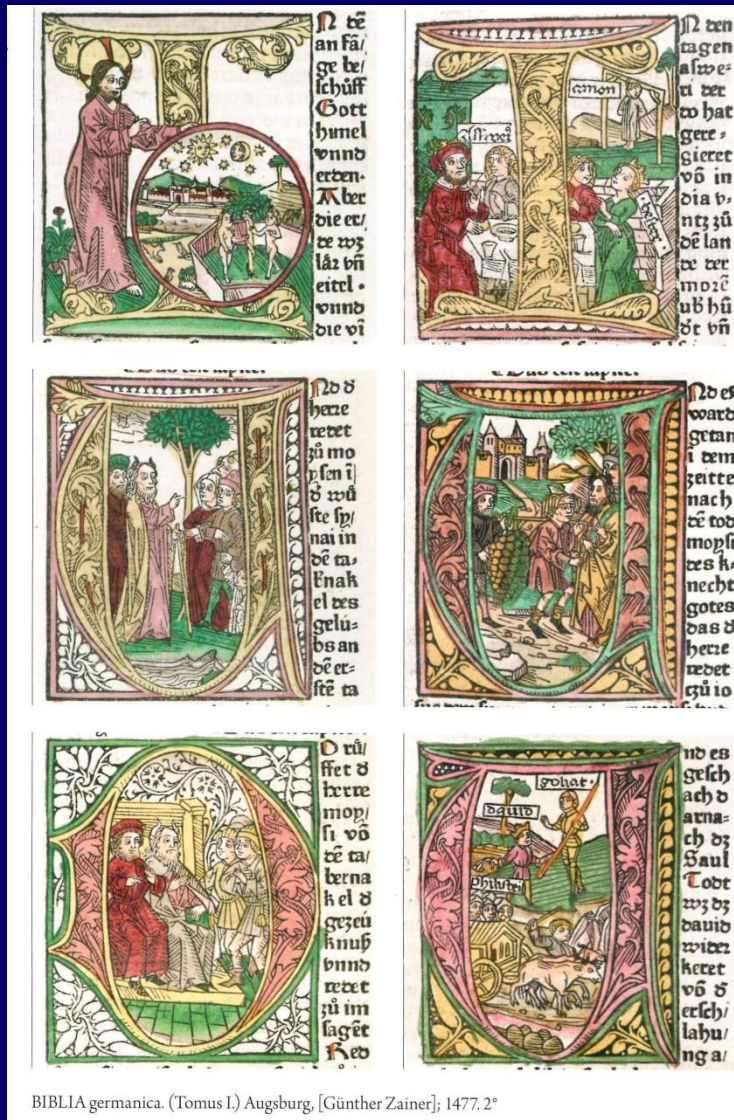 N dē
an fā/
ge be/
schůff
Gott
himel
vnnd
erden·
Aber
die er/
de wz
lår vñ
eitel ·
vnnd
die vi
amon
hester
N den
tagen
aswe=
ri der
do hat
gere=
gieret
vō in
dia v=
ntz zů
dē lan
de der
morē
ub hū
dt vñ
Nd d̄
herre
redet
zů mo
ysen ī
d̄ wů
ste sy/
nai in
dē ta=
el des
gelü=
bs an
dē er=
stē ta
Nd es
ward
getan
i dem
zeitte
nach
dē tod
moysi
des k=
necht
gotes
das d̄
herre
redet
czů io
O rů/
ffet d̄
herre
moy/
si vō
dē ta/
berna
kel d̄
gezeü
knuß
vnnd
redet
zů im
sagēt
Red
goliat·
dauid
philistei
nd es
gesch
ach d
arna=
ch dz
Saul
Todt
wz dz
dauid
wider
keret
vō d̄
erschi
lahu/
ng a/
BIBLIA germanica. (Tomus I.) Augsburg, [Günther Zainer]; 1477. 2°